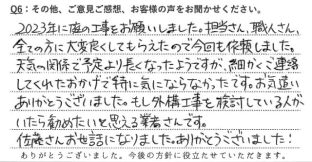 Q6：その他、ご意見ご感想、お客様の声をお聞かせください。
2023年に庭の工事をお願いしました。担当さん、職人さん、
全ての方に大変良くしてもらえたので今回も依頼しました。
天気の関係で予定より長くなったようですが、細かくご連絡
してくれたおかげで特に気にならなかったです。お気遣い
ありがとうございました。もし外構工事を検討している人が
いたら勧めたいと思える業者さんです。
佐藤さんお世話になりました。ありがとうございました！
ありがとうございました。今後の方針に役立たせていただきます。